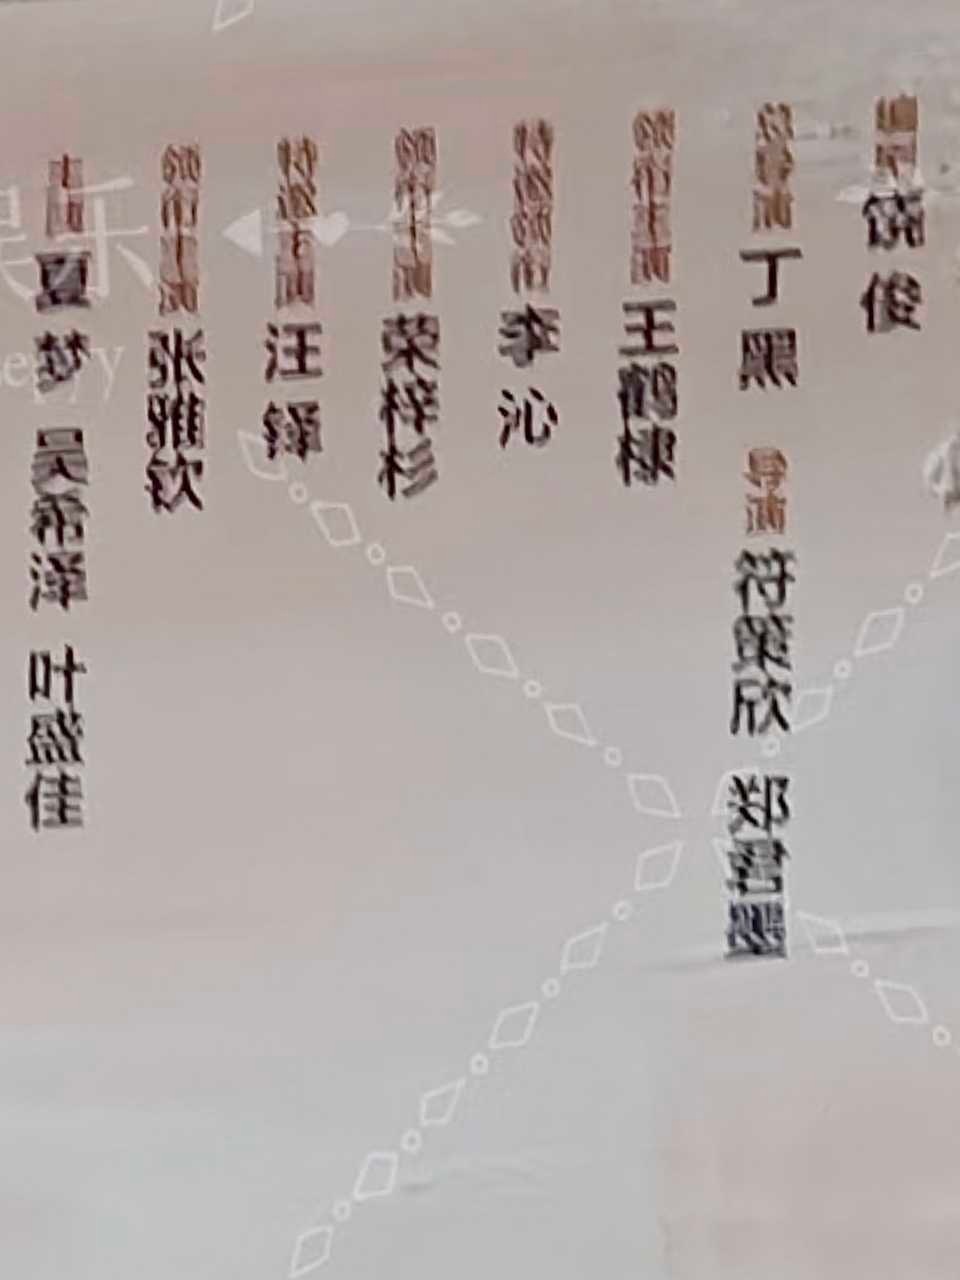 编剧 饶俊
总导演 丁黑 导演 符策欣 郑 墨
领衔主演 王鹤棣
特邀领衔 李沁
领衔主演 荣梓杉
特邀主演 汪铎
领衔主演 张雅钦
主演 夏梦 吴希泽 叶盛佳